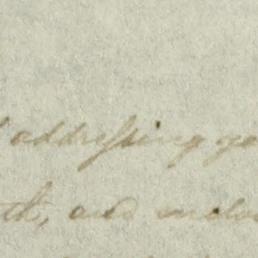 addressing yo
th, and enclos